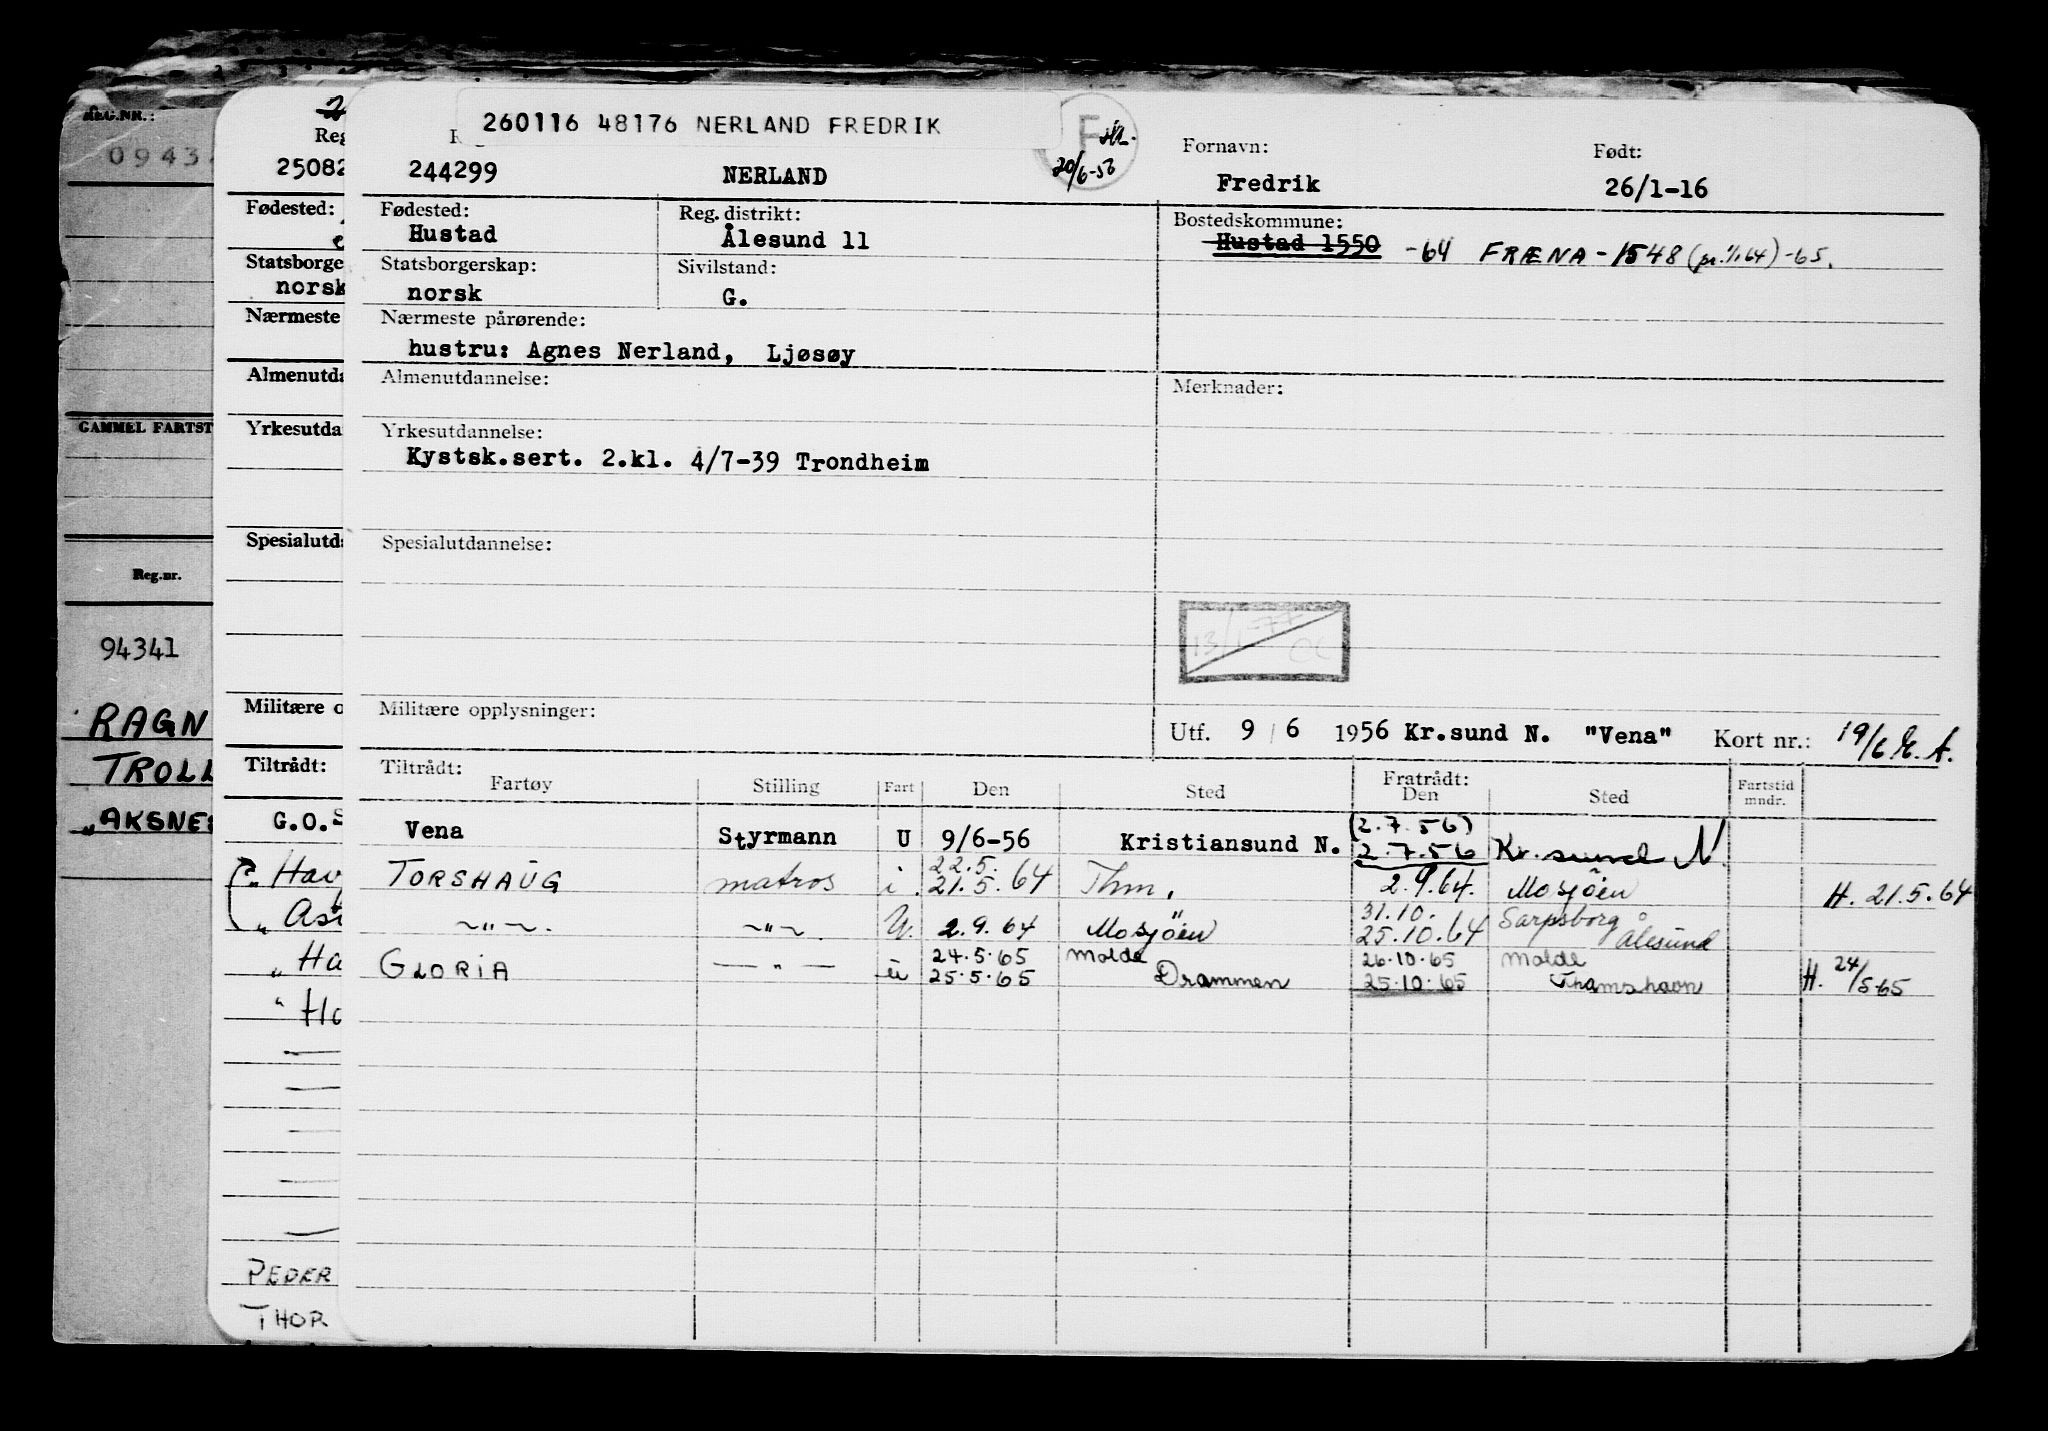 260116 48176 NERLAND FREDRIK
REG.NR.:
0943
Reg
25082
Fødested:
Statsborge
norsk
Nærmeste
Almenutda
GAMMEL FARTST
Yrkesutda
Spesialutda
Reg.nr.
94341
RAGN
TROLL
"AKSNES
Militære o
Tiltrådt:
G.O.S
" Hav
" Ast
" Ha
" Ha
PEDER
THOR
244299 NERLAND
F
20/6-56
Fornavn:
Fredrik
Født:
26/1-16
Fødested:
Hustad
Reg. distrikt:
Ålesund 11
Bostedskommune:
Hustad 1550 -64 FRÆNA - 1548 (pr. 1/1 64) -65.
Statsborgerskap:
norsk
Sivilstand:
G.
Nærmeste pårørende:
hustru: Agnes Nerland, Ljøsøy
Almenutdannelse:
Merknader:
Yrkesutdannelse:
Kystsk.sert. 2.kl. 4/7-39 Trondheim
Spesialutdannelse:
13/1-77
OC
Militære opplysninger:
Utf. 9 / 6 1956 Kr.sund N. "Vena" Kort nr.: 19/6
Tiltrådt:
Fartøy Stilling Fart Den Sted
Fratrådt:
Den Sted
Fartstid
mndr.
Vena Styrmann U 9/6-56 Kristiansund N. (2.7.56)
2.7.56 Kr.sund N.
TORSHAUG matros i. 22.5.
21.5.64 Thm. 2.9.64. Mosjøen H. 21.5.64
~"~. ~"~. U. 2.9.64 Mosjøen 31.10. Sarpsborg
25.10.64 Ålesund
GLORIA — " — u 24.5.65 Molde 26.10.65 Molde
25.5.65 Drammen 25.10.65 Thamshavn H. 24/5-65